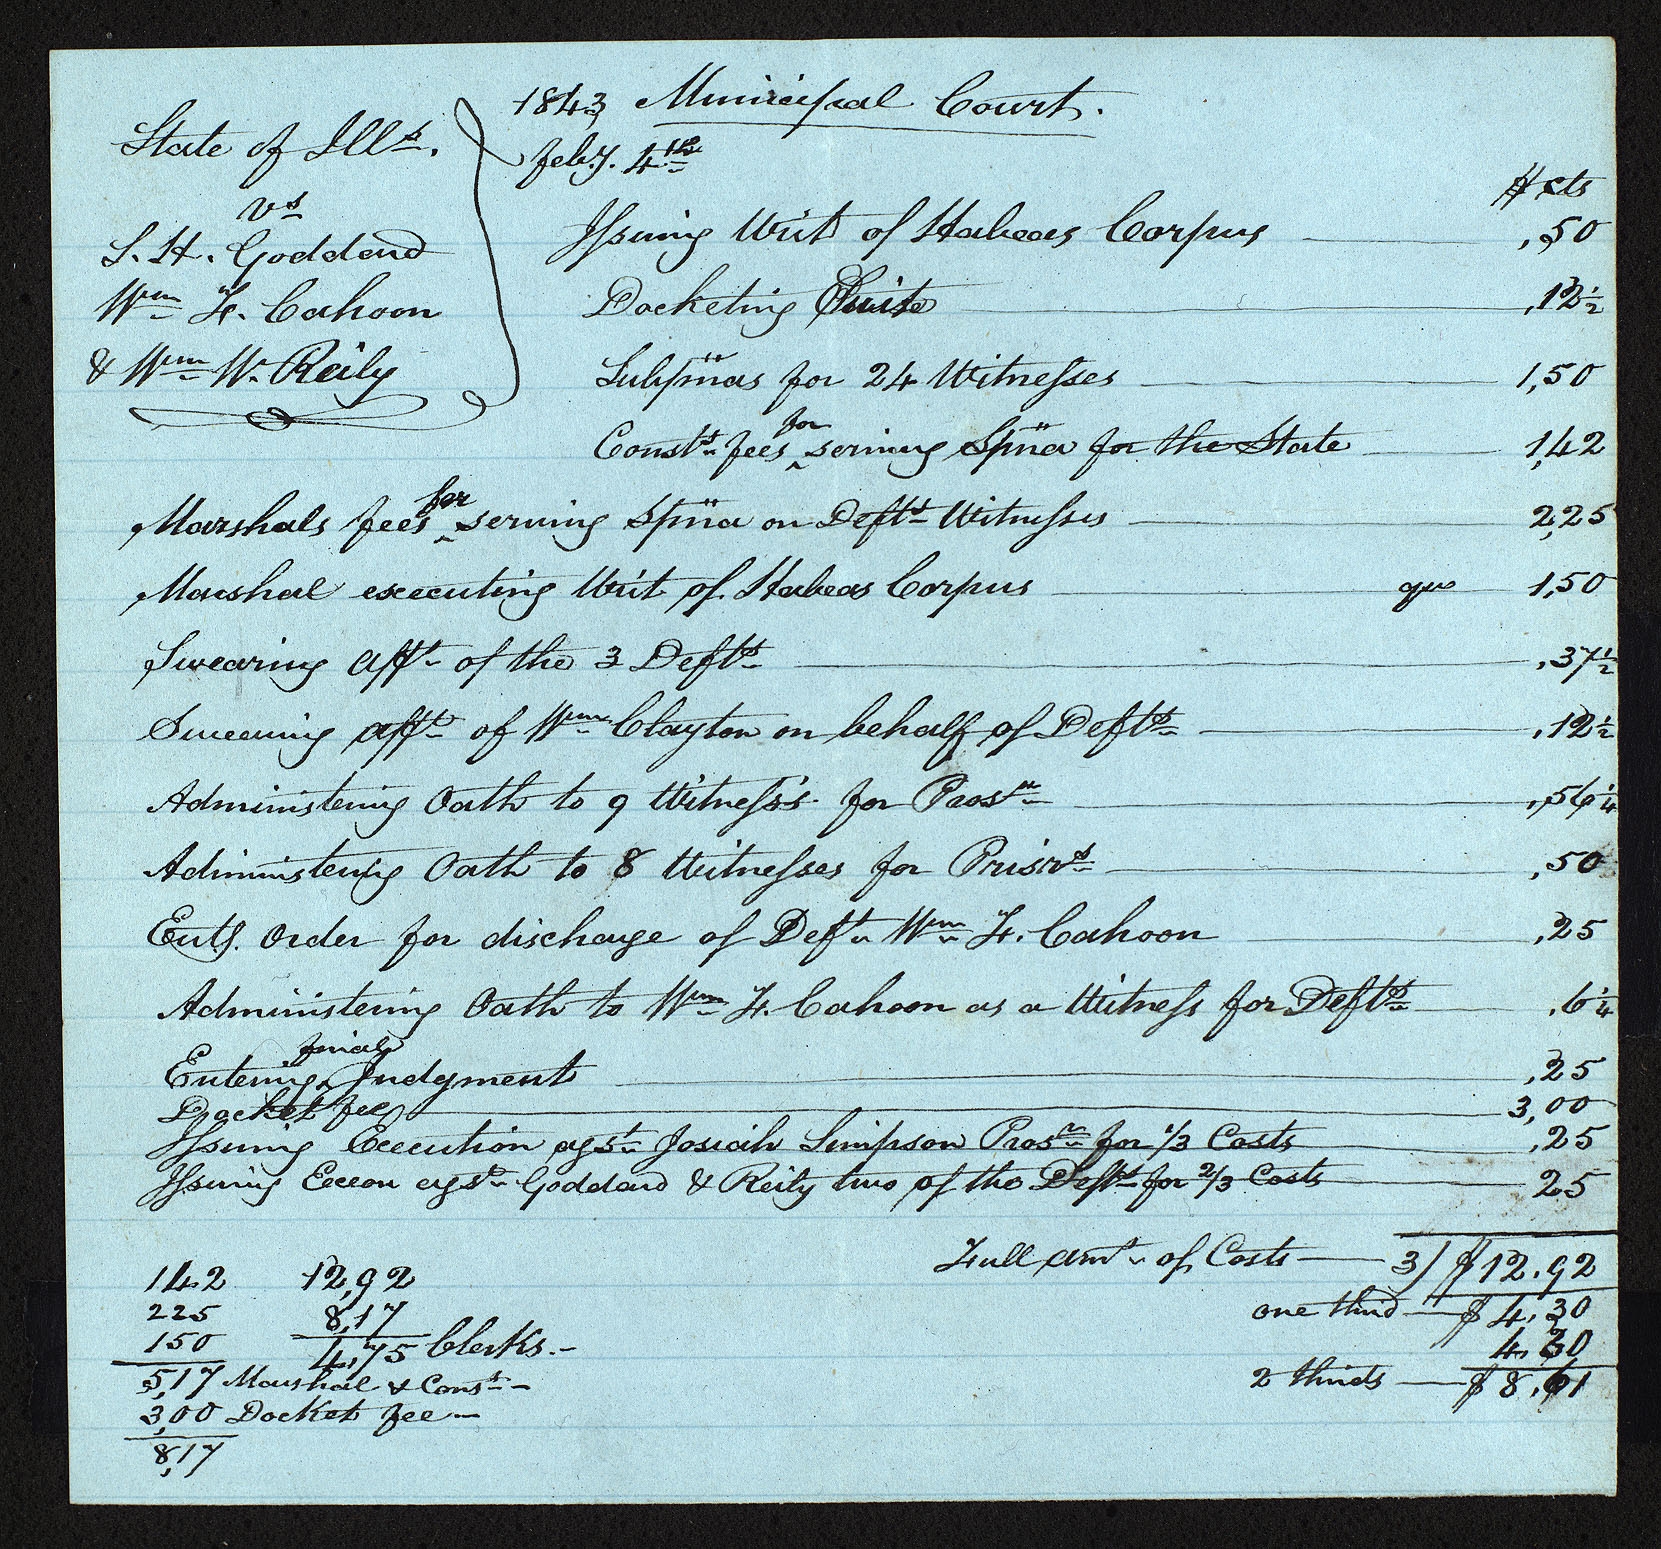 1843 Municipal Court.
State of Ills. feby. 4th
vs
S. H. Goddard
Wm F. Cahoon
& Wm W. Reily
$ cts
Issuing Writ of Habeas Corpus ,50
Docketing Suite ,12½
Subpnas for 24 Witnesses 1,50
Consts. fees for serving Spna for the State 1,42
Marshals fees for serving Spna on Defts Witnesses 2,25
Marshal executing Writ of Habeas Corpus 1,50
Swearing afft. of the 3 Defts ,37½
Swearing afft of Wm Clayton on behalf of Defts ,12½
Administering Oath to 9 Witness's for Prosn ,56¼
Administering Oath to 8 Witnesses for Prisrs ,50
Entg. Order for discharge of Deft. Wm F. Cahoon ,25
Administering Oath to Wm F. Cahoon as a Witness for Defts ,6¼
Entering final Judgment ,25
Docket fee 3,00
Issuing Execution agst. Josiah Simpson Prosr for 1/3 Costs ,25
Issuing Execon agst. Goddard & Reily two of the Defts for 2/3 Costs 25
Full amt. of Costs 3) $12.92
one third $4,30
4,30
2 thirds $8,61
142
225
150
5,17 Marshal & Const.
3,00 Docket fee
8,17
12,92
8,17
4,75 Clerks.